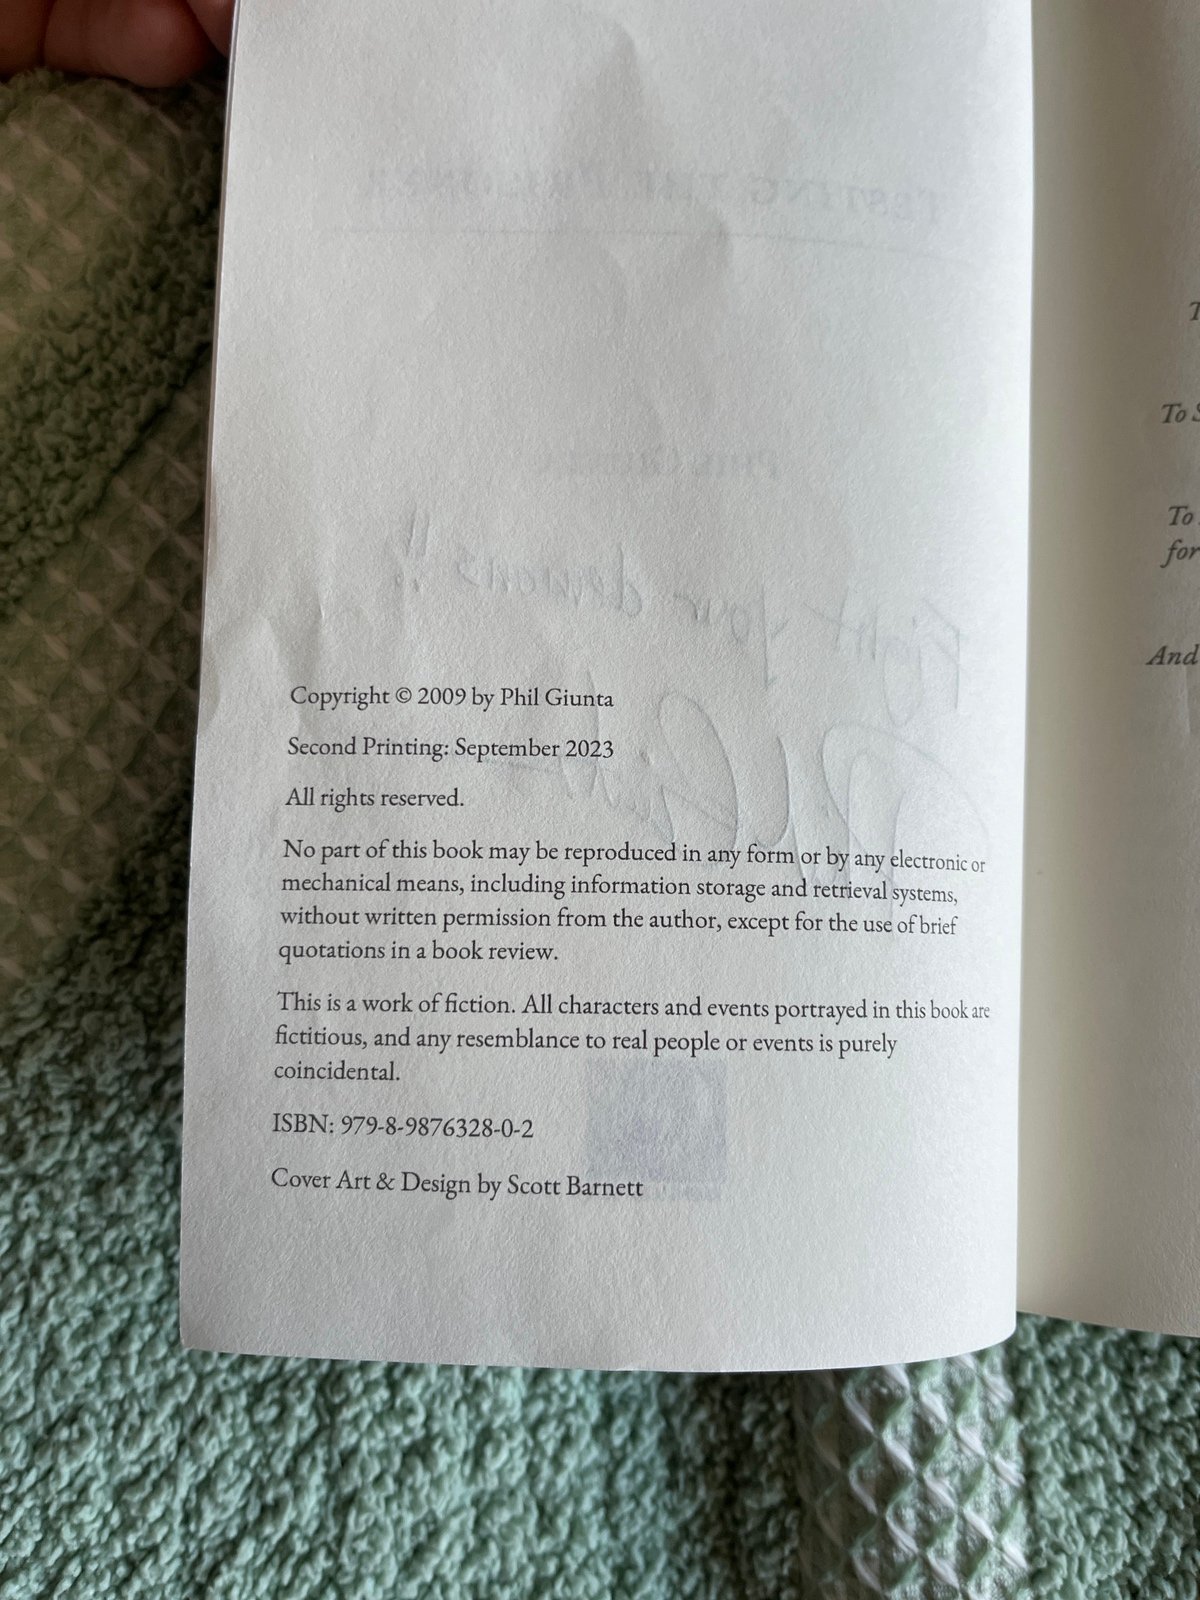 TESTING THE PRISONER
Fight your demons!!
Copyright © 2009 by Phil Giunta
Second Printing: September 2023
All rights reserved.
No part of this book may be reproduced in any form or by any electronic or
mechanical means, including information storage and retrieval systems,
without written permission from the author, except for the use of brief
quotations in a book review.
This is a work of fiction. All characters and events portrayed in this book are
fictitious, and any resemblance to real people or events is purely
coincidental.
ISBN: 979-8-9876328-0-2
Cover Art & Design by Scott Barnett
To
To
for
And